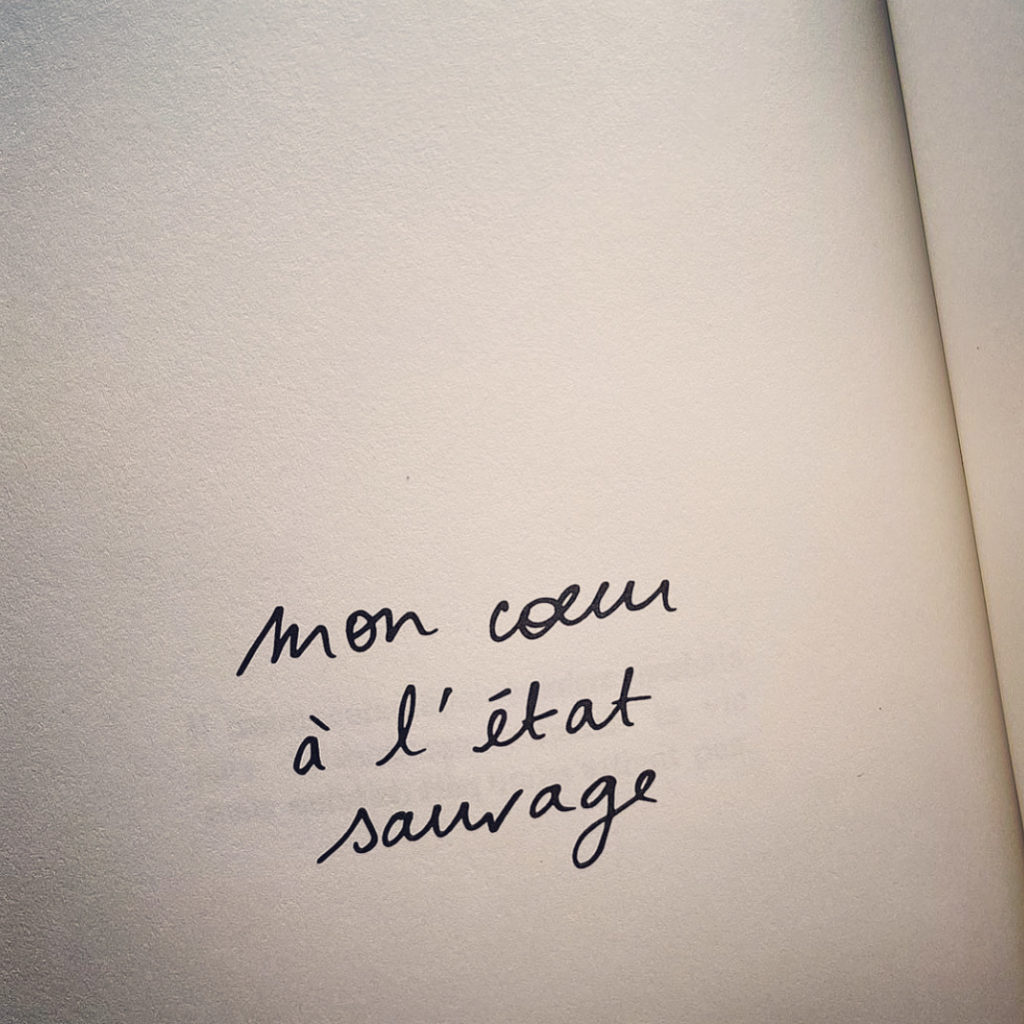 mon cœur
à l'état
sauvage